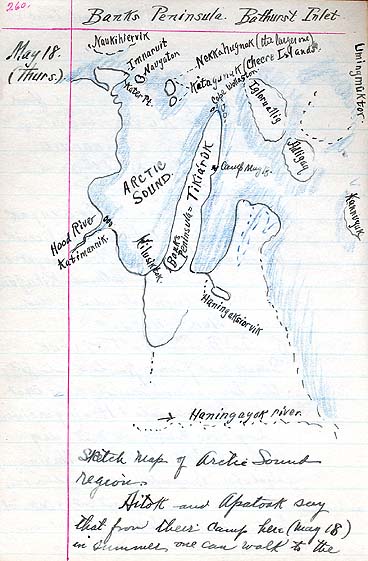 260.
Banks Peninsula. Bathurst Inlet
May 18.
(Thurs.)
Naukihlervik
Imnaruit
Navyaton
Kater Pt.
Nekkahugnak (the large one)
Katagunak (Cheere Islands)
Cape Wollaston
Igloruallig
Umingmuktor
Algay
Kannuyuk
ARCTIC
SOUND.
Banks
Peninsula = Tikiarok
Camp May 18.
Hood River
Katimannik
Kiluhiktok
Haningaksiorvik
Haningayok river.
Sketch map of Arctic Sound
region.
Aitok and Apatook say
that from their camp here (May 18)
in summer one can walk to the